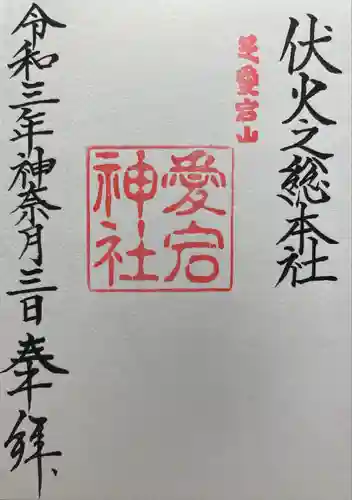 伏火之総本社
芝愛宕山
愛宕
神社
令和三年神奈月三日奉拝